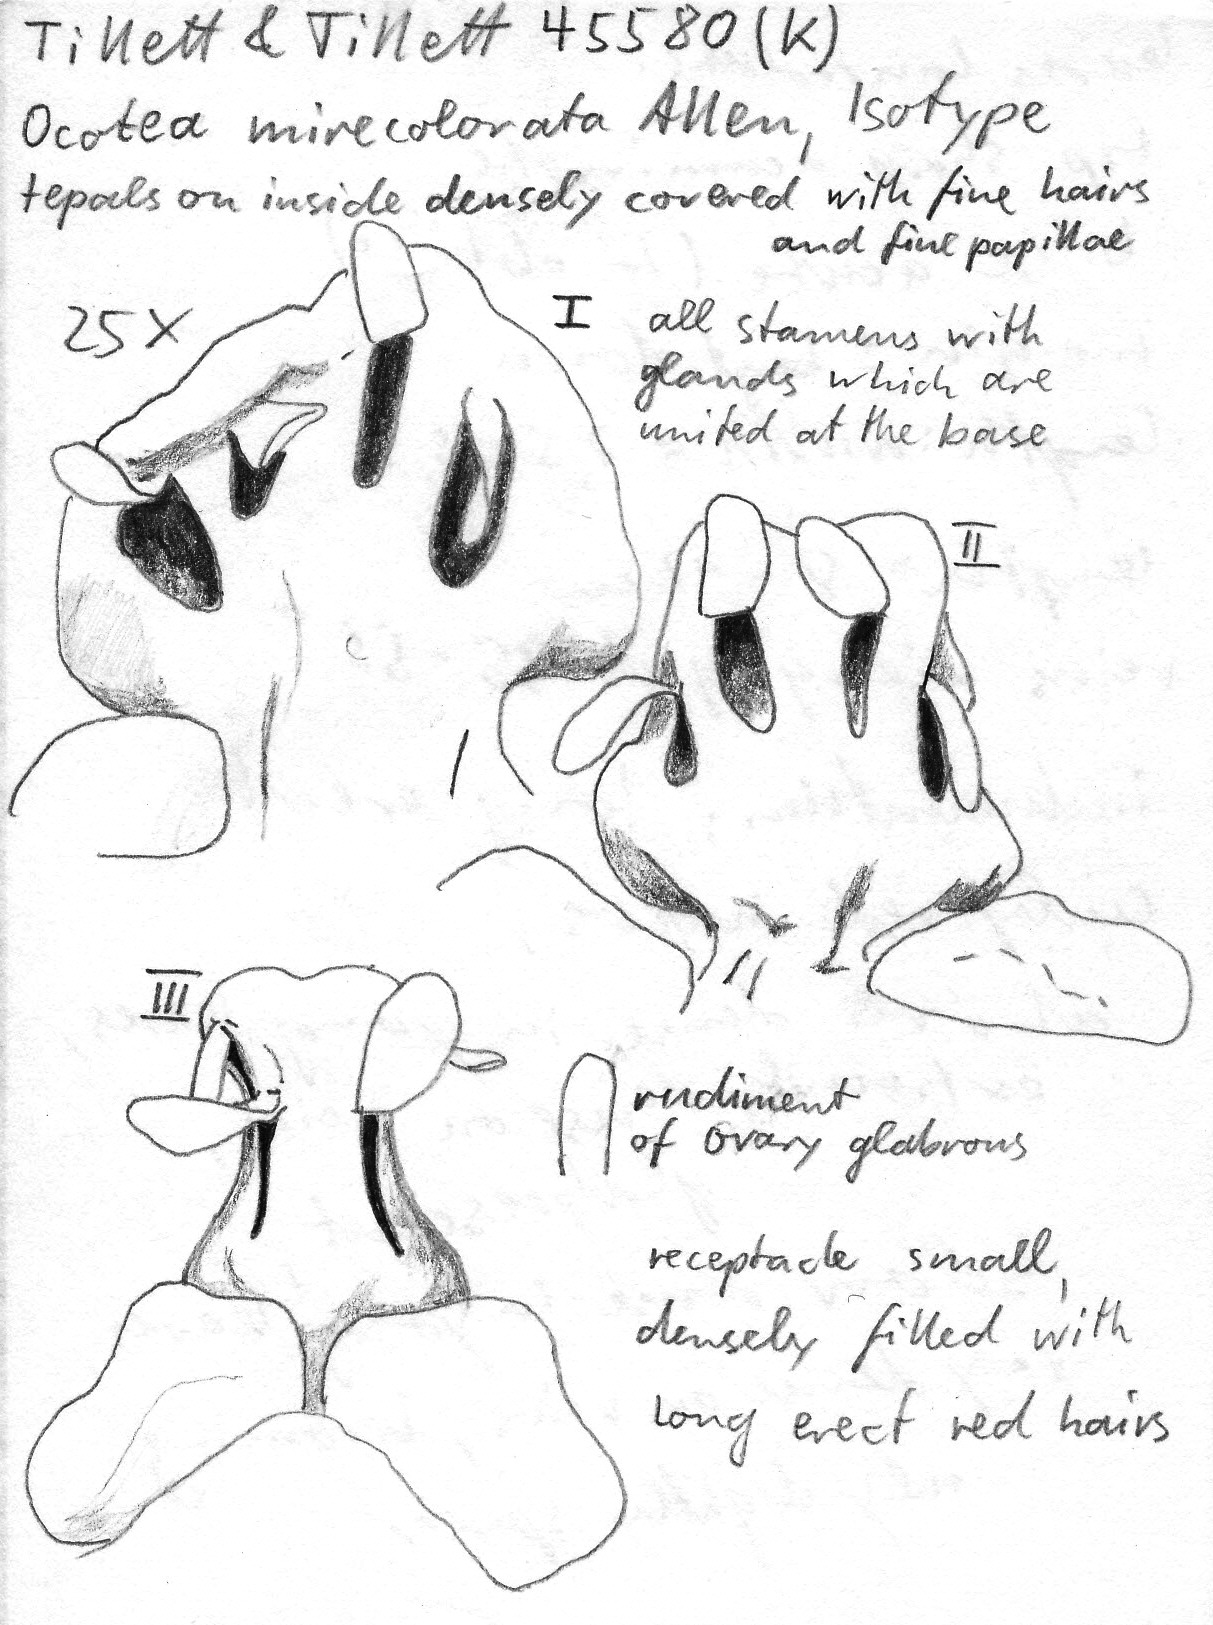 Tillett & Tillett 45580 (K)
Ocotea mirecolorata Allen, Isotype
tepals on inside densely covered with fine hairs
and fine papillae
25 X
I
all stamens with
glands which are
united at the base
II
III
rudiment
of ovary glabrous
receptacle small,
densely filled with
long erect red hairs